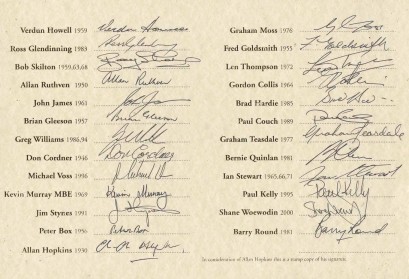 Verdun Howell 1959
Ross Glendinning 1983
Bob Skilton 1959,63,68
Allan Ruthven 1950
John James 1961
Brian Gleeson 1957
Greg Williams 1986,94
Don Cordner 1946
Michael Voss 1996
Kevin Murray MBE 1969
Jim Stynes 1991
Peter Box 1956
Allan Hopkins 1930
Graham Moss 1976
Fred Goldsmith 1955
Len Thompson 1972
Gordon Collis 1964
Brad Hardie 1985
Paul Couch 1989
Graham Teasdale 1977
Bernie Quinlan 1981
Ian Stewart 1965,66,71
Paul Kelly 1995
Shane Woewodin 2000
Barry Round 1981
In consideration of Allan Hopkins this is a stamp copy of his signature.